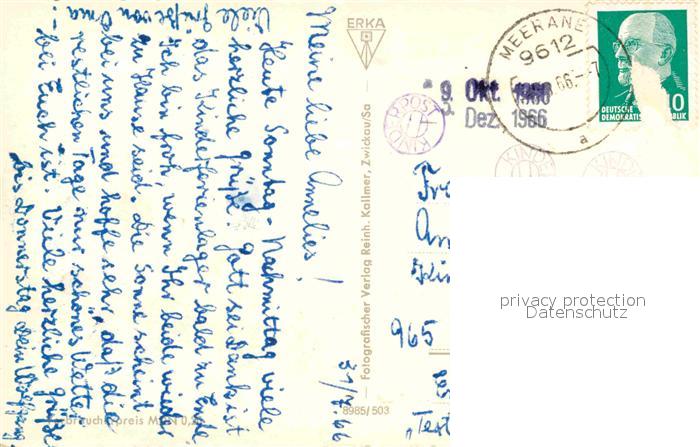 Meine liebe Annelies!
Heute Sonntag-Nachmittag viele
herzliche Grüße. Gott sei Dank ist
das Kinderferienlager bald zu Ende.
Ich bin froh, wenn Ihr beide wieder
zu Hause seid. Die Sonne scheint
bei uns und hoffe sehr, daß die
restlichen Tage nur schönes Wetter
bei Euch ist. Viele herzliche Grüße
bis Donnerstag Dein Wolfgang.
Viele Grüße von Oma
31/7.66
ERKA
Fotografischer Verlag Reinh. Kallmer, Zwickau/Sa
8985/503
MEERANE
9612
66.-7
a
9. Okt. 1966
Dez. 1966
POST
KIND
DEUTSCHE
DEMOKRATISCHE REPUBLIK
10
Fr
An
965
"Test
privacy protection
Datenschutz